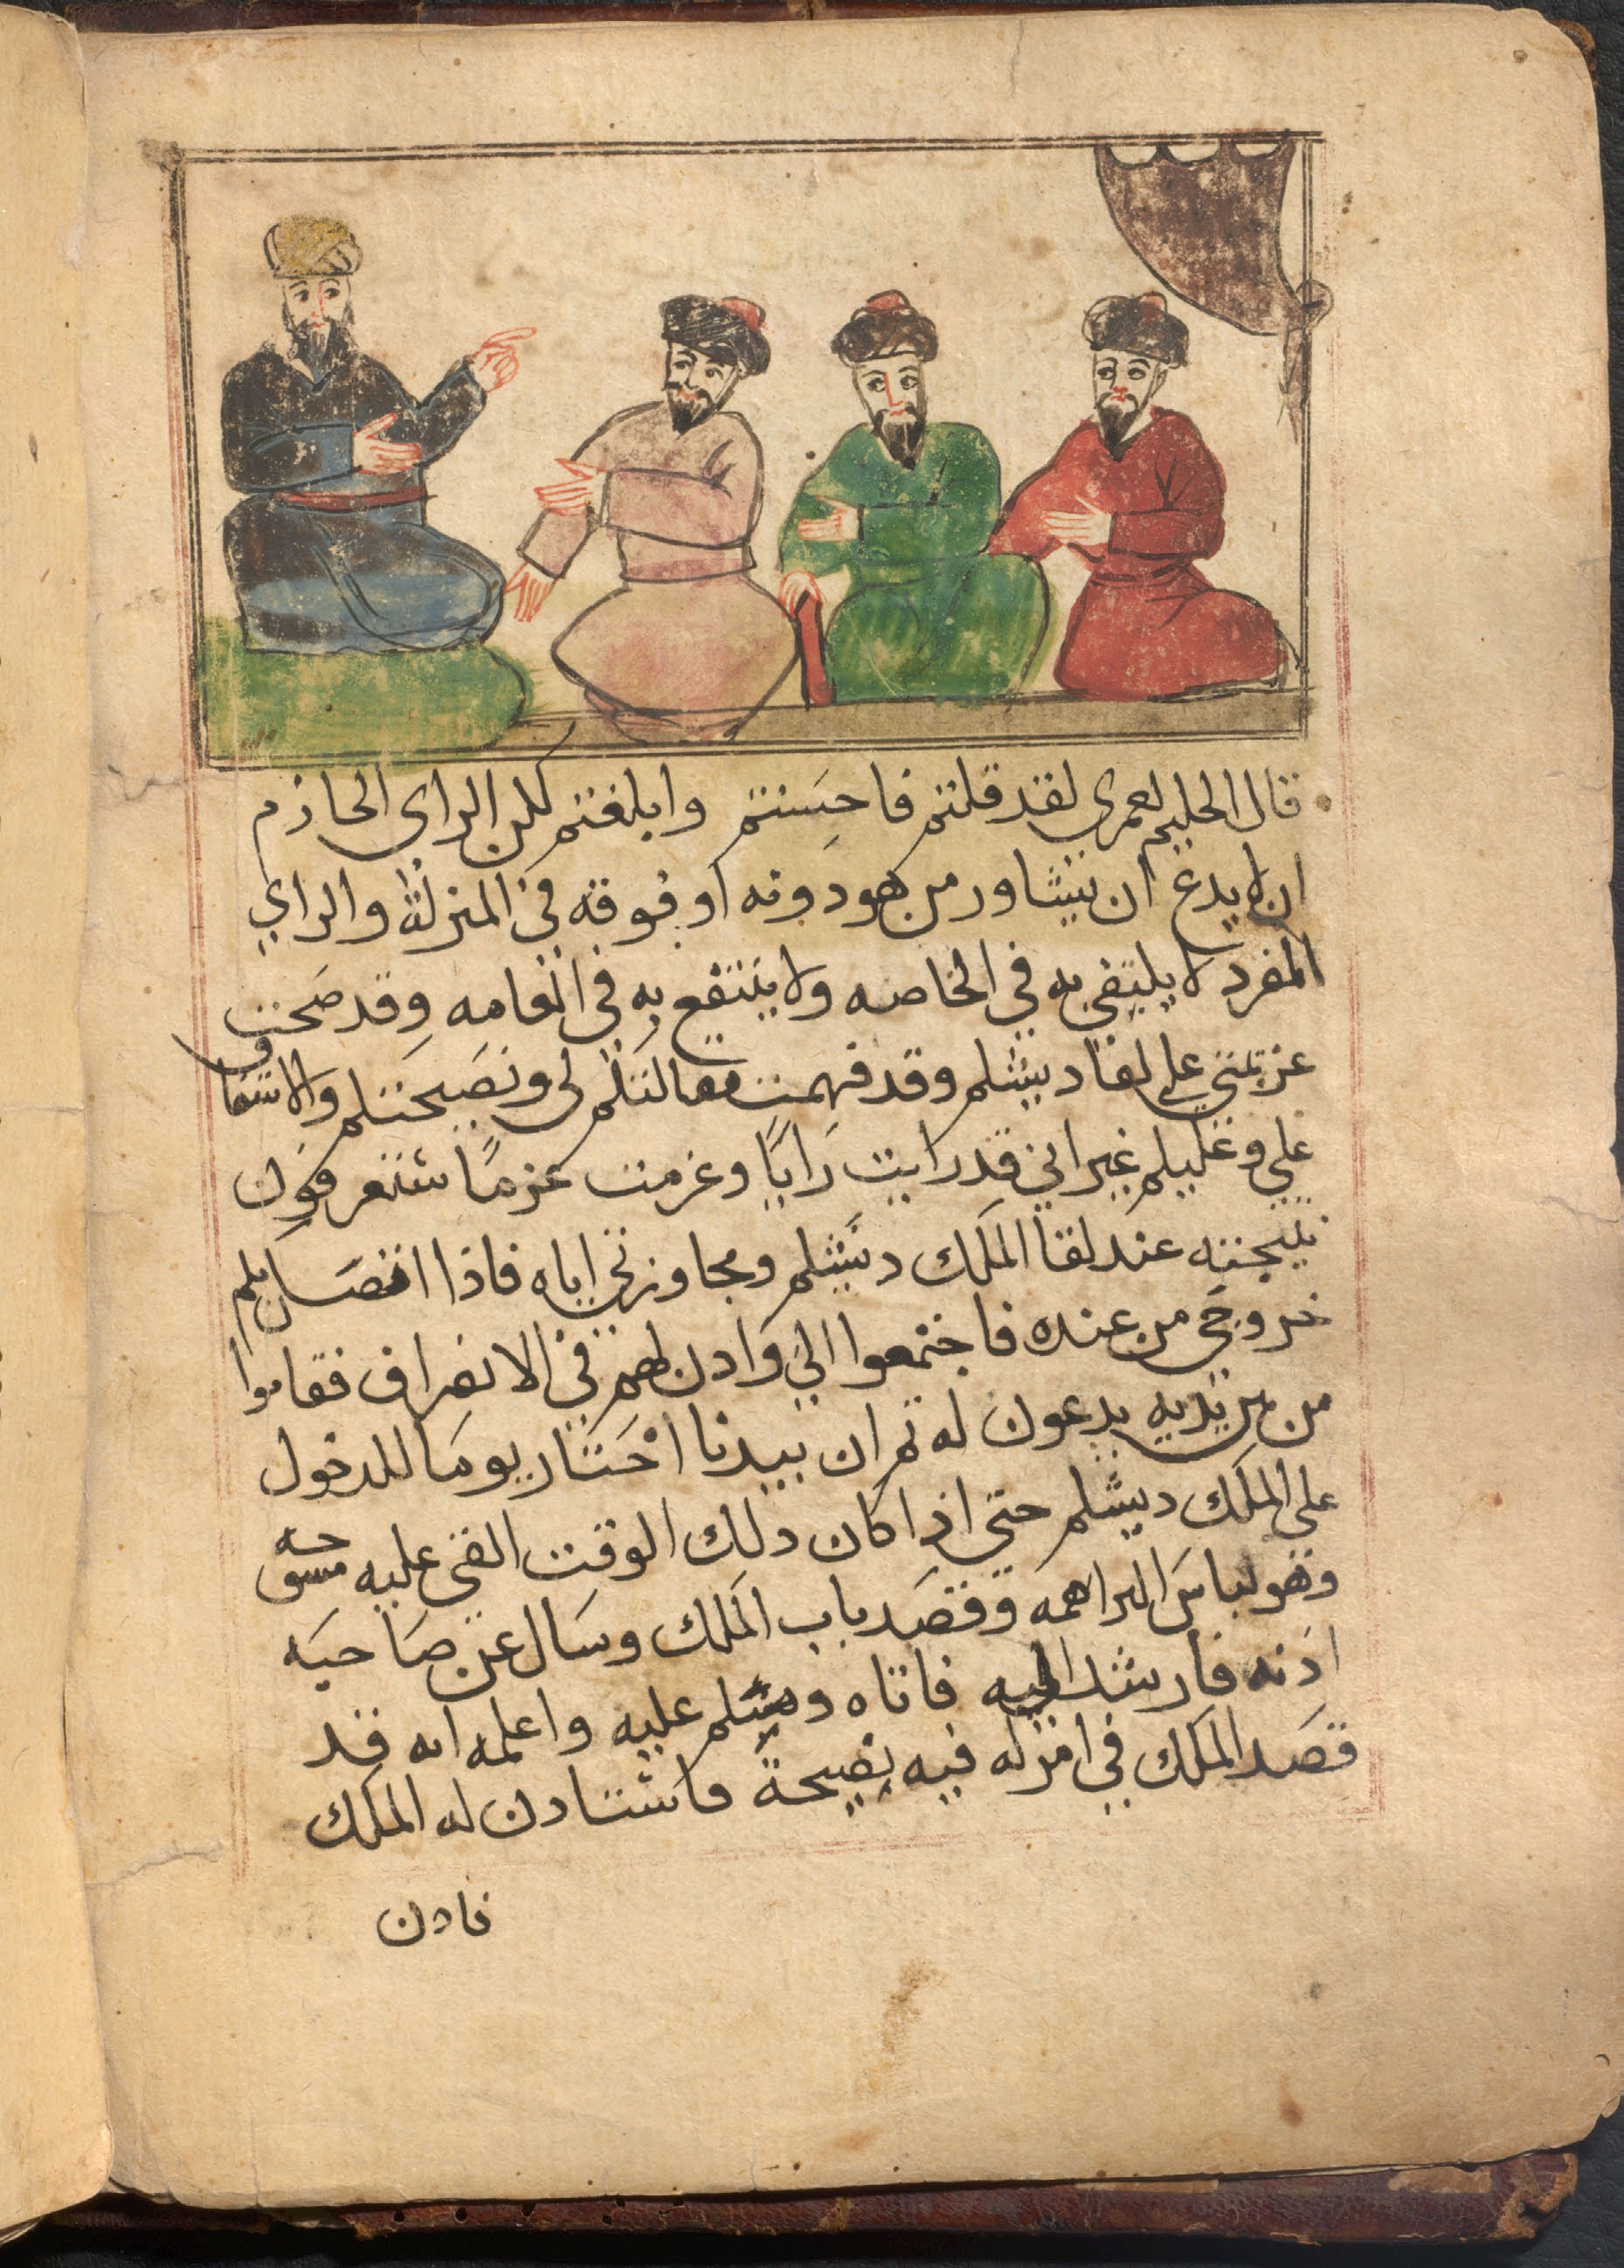 قال الحليم لعمري لقد قلتم فاحسنتم وابلغتم لكن الراي الحازم
ان لا يدع ان يشاور من هو دونه او فوقه في المنزلة والراي
المفرد لا يكتفي به في الخاصه ولا ينتفع به في العامه وقد صحت
عزيمتي علي لقا دبشلم وقد فهمت مقالتكم لي ونصيحتكم والاشفاق
علي وعليكم غير اني قد رايت رايًا وعزمت عزمًا ستعرفون
نتيجته عند لقا الملك دبشلم ومجاوزتي اياه فاذا اتصل بكم
خروجي من عنده فاجتمعوا الي وادن لهم في الانصراف فقاموا
من بين يديه يدعون له ثم ان بيدبا اختار يوما للدخول
علي الملك دبشلم حتي اذا كان دلك الوقت القي عليه مسوحه
وهو لباس البراهمه وقصد باب الملك وسال عن صاحبه
اذنه فارشد اليه فاتاه وسلم عليه واعلمه انه قد
قصد الملك في امر له فيه نصيحة فاستادن له الملك
فادن